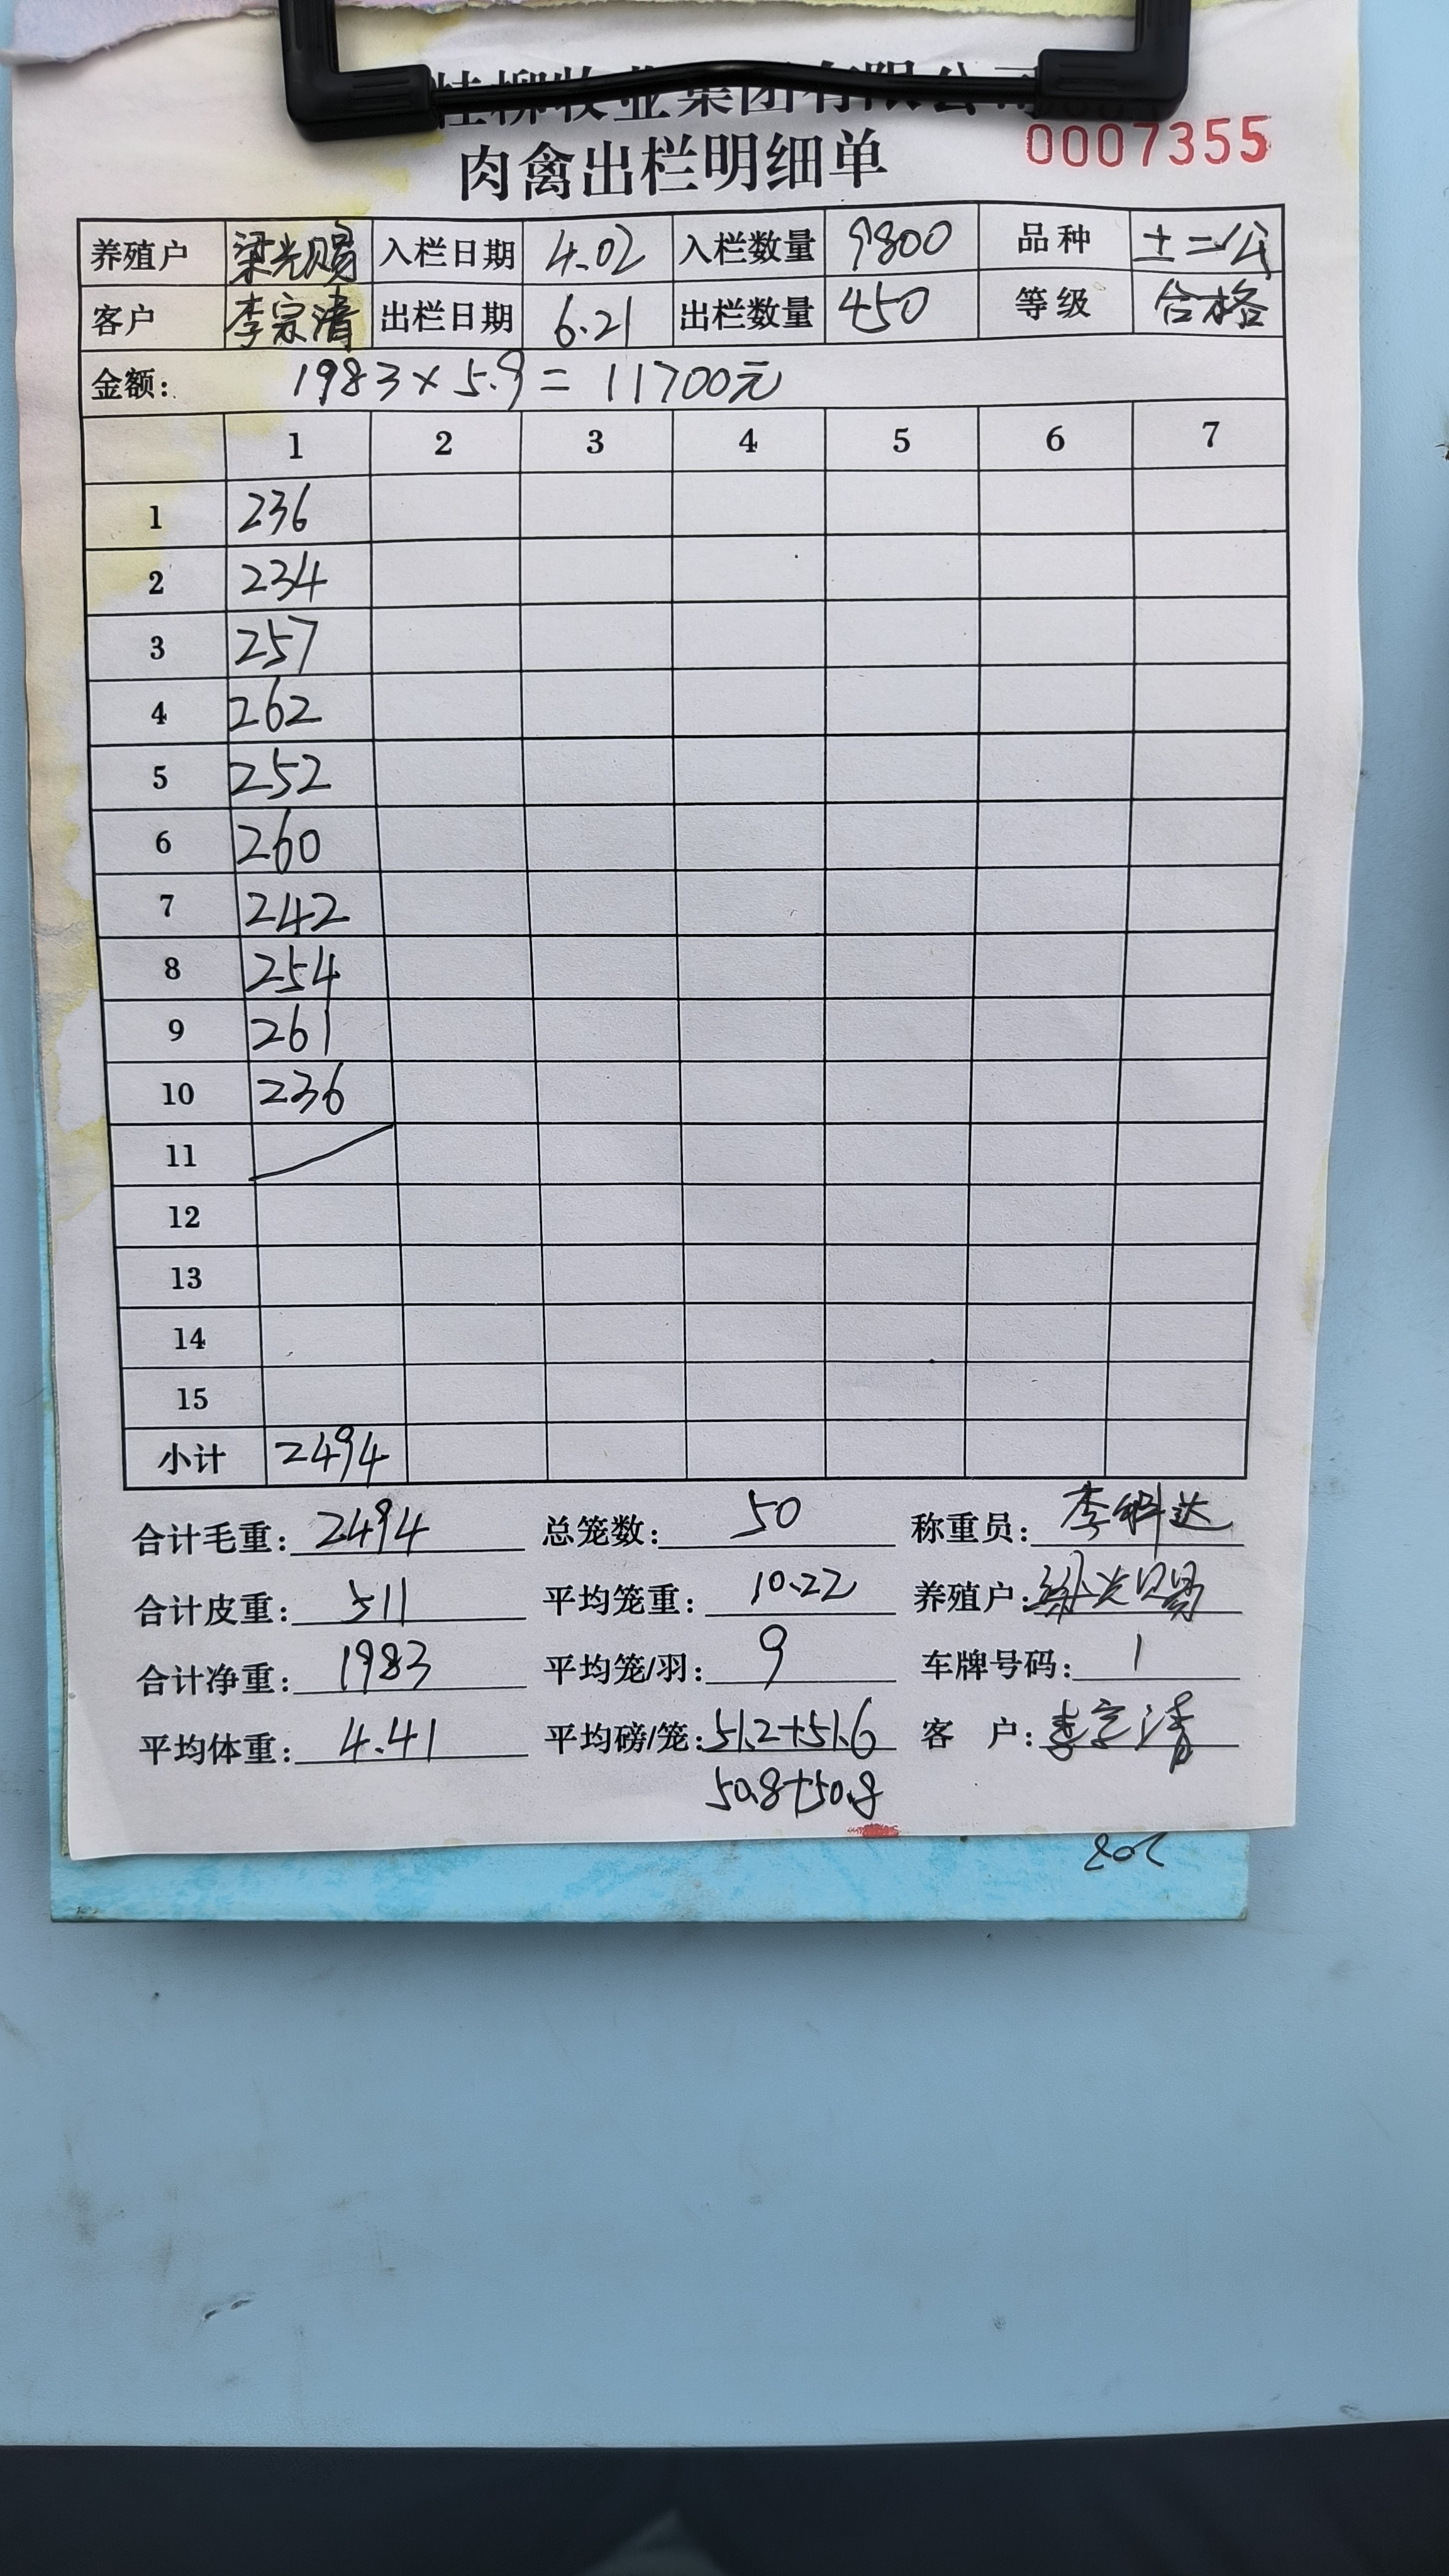 桂柳牧业集团有限公司
肉禽出栏明细单
0007355
养殖户 梁光赐 入栏日期 4.02 入栏数量 9800 品种 土二公
客户 李宗清 出栏日期 6.21 出栏数量 450 等级 合格
金额: 1983×5.9=11700元
1 2 3 4 5 6 7
1 236
2 234
3 257
4 262
5 252
6 260
7 242
8 254
9 261
10 236
11
12
13
14
15
小计 2494
合计毛重: 2494 总笼数: 50 称重员: 李科达
合计皮重: 511 平均笼重: 10.22 养殖户: 梁光赐
合计净重: 1983 平均笼/羽: 9 车牌号码: 1
平均体重: 4.41 平均磅/笼: 51.2+51.6 客 户: 李宗清
50.8+50.8